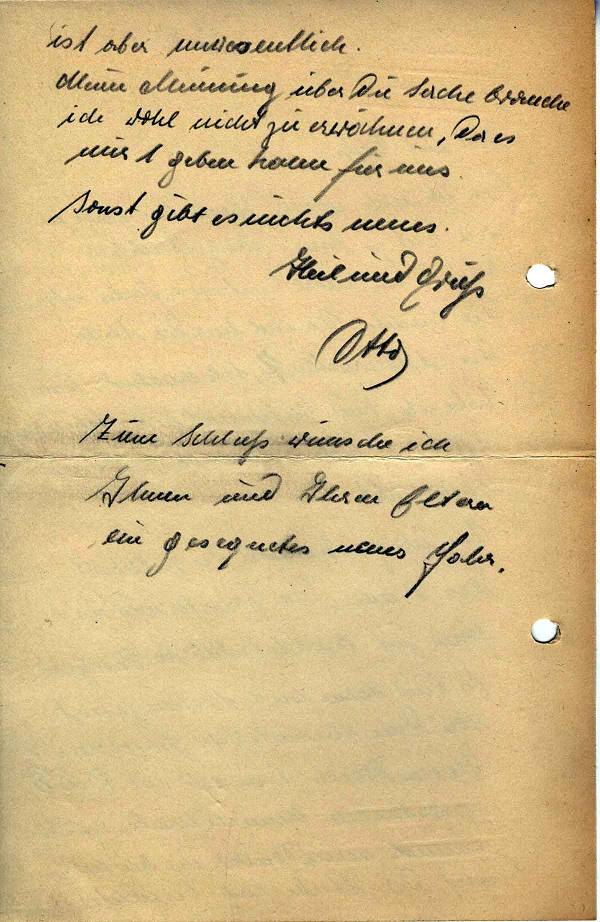 ist aber unwesentlich.
Meine Meinung über Die Sache brauche
ich wohl nicht zu erwähnen, Da es
nur 1 geben kann für uns.
Sonst gibt es nichts neues.
Heil und Gruß
Otto
Zum Schluß wünsche ich
Ihnen und Ihren Eltern
ein gesegnetes neues Jahr.